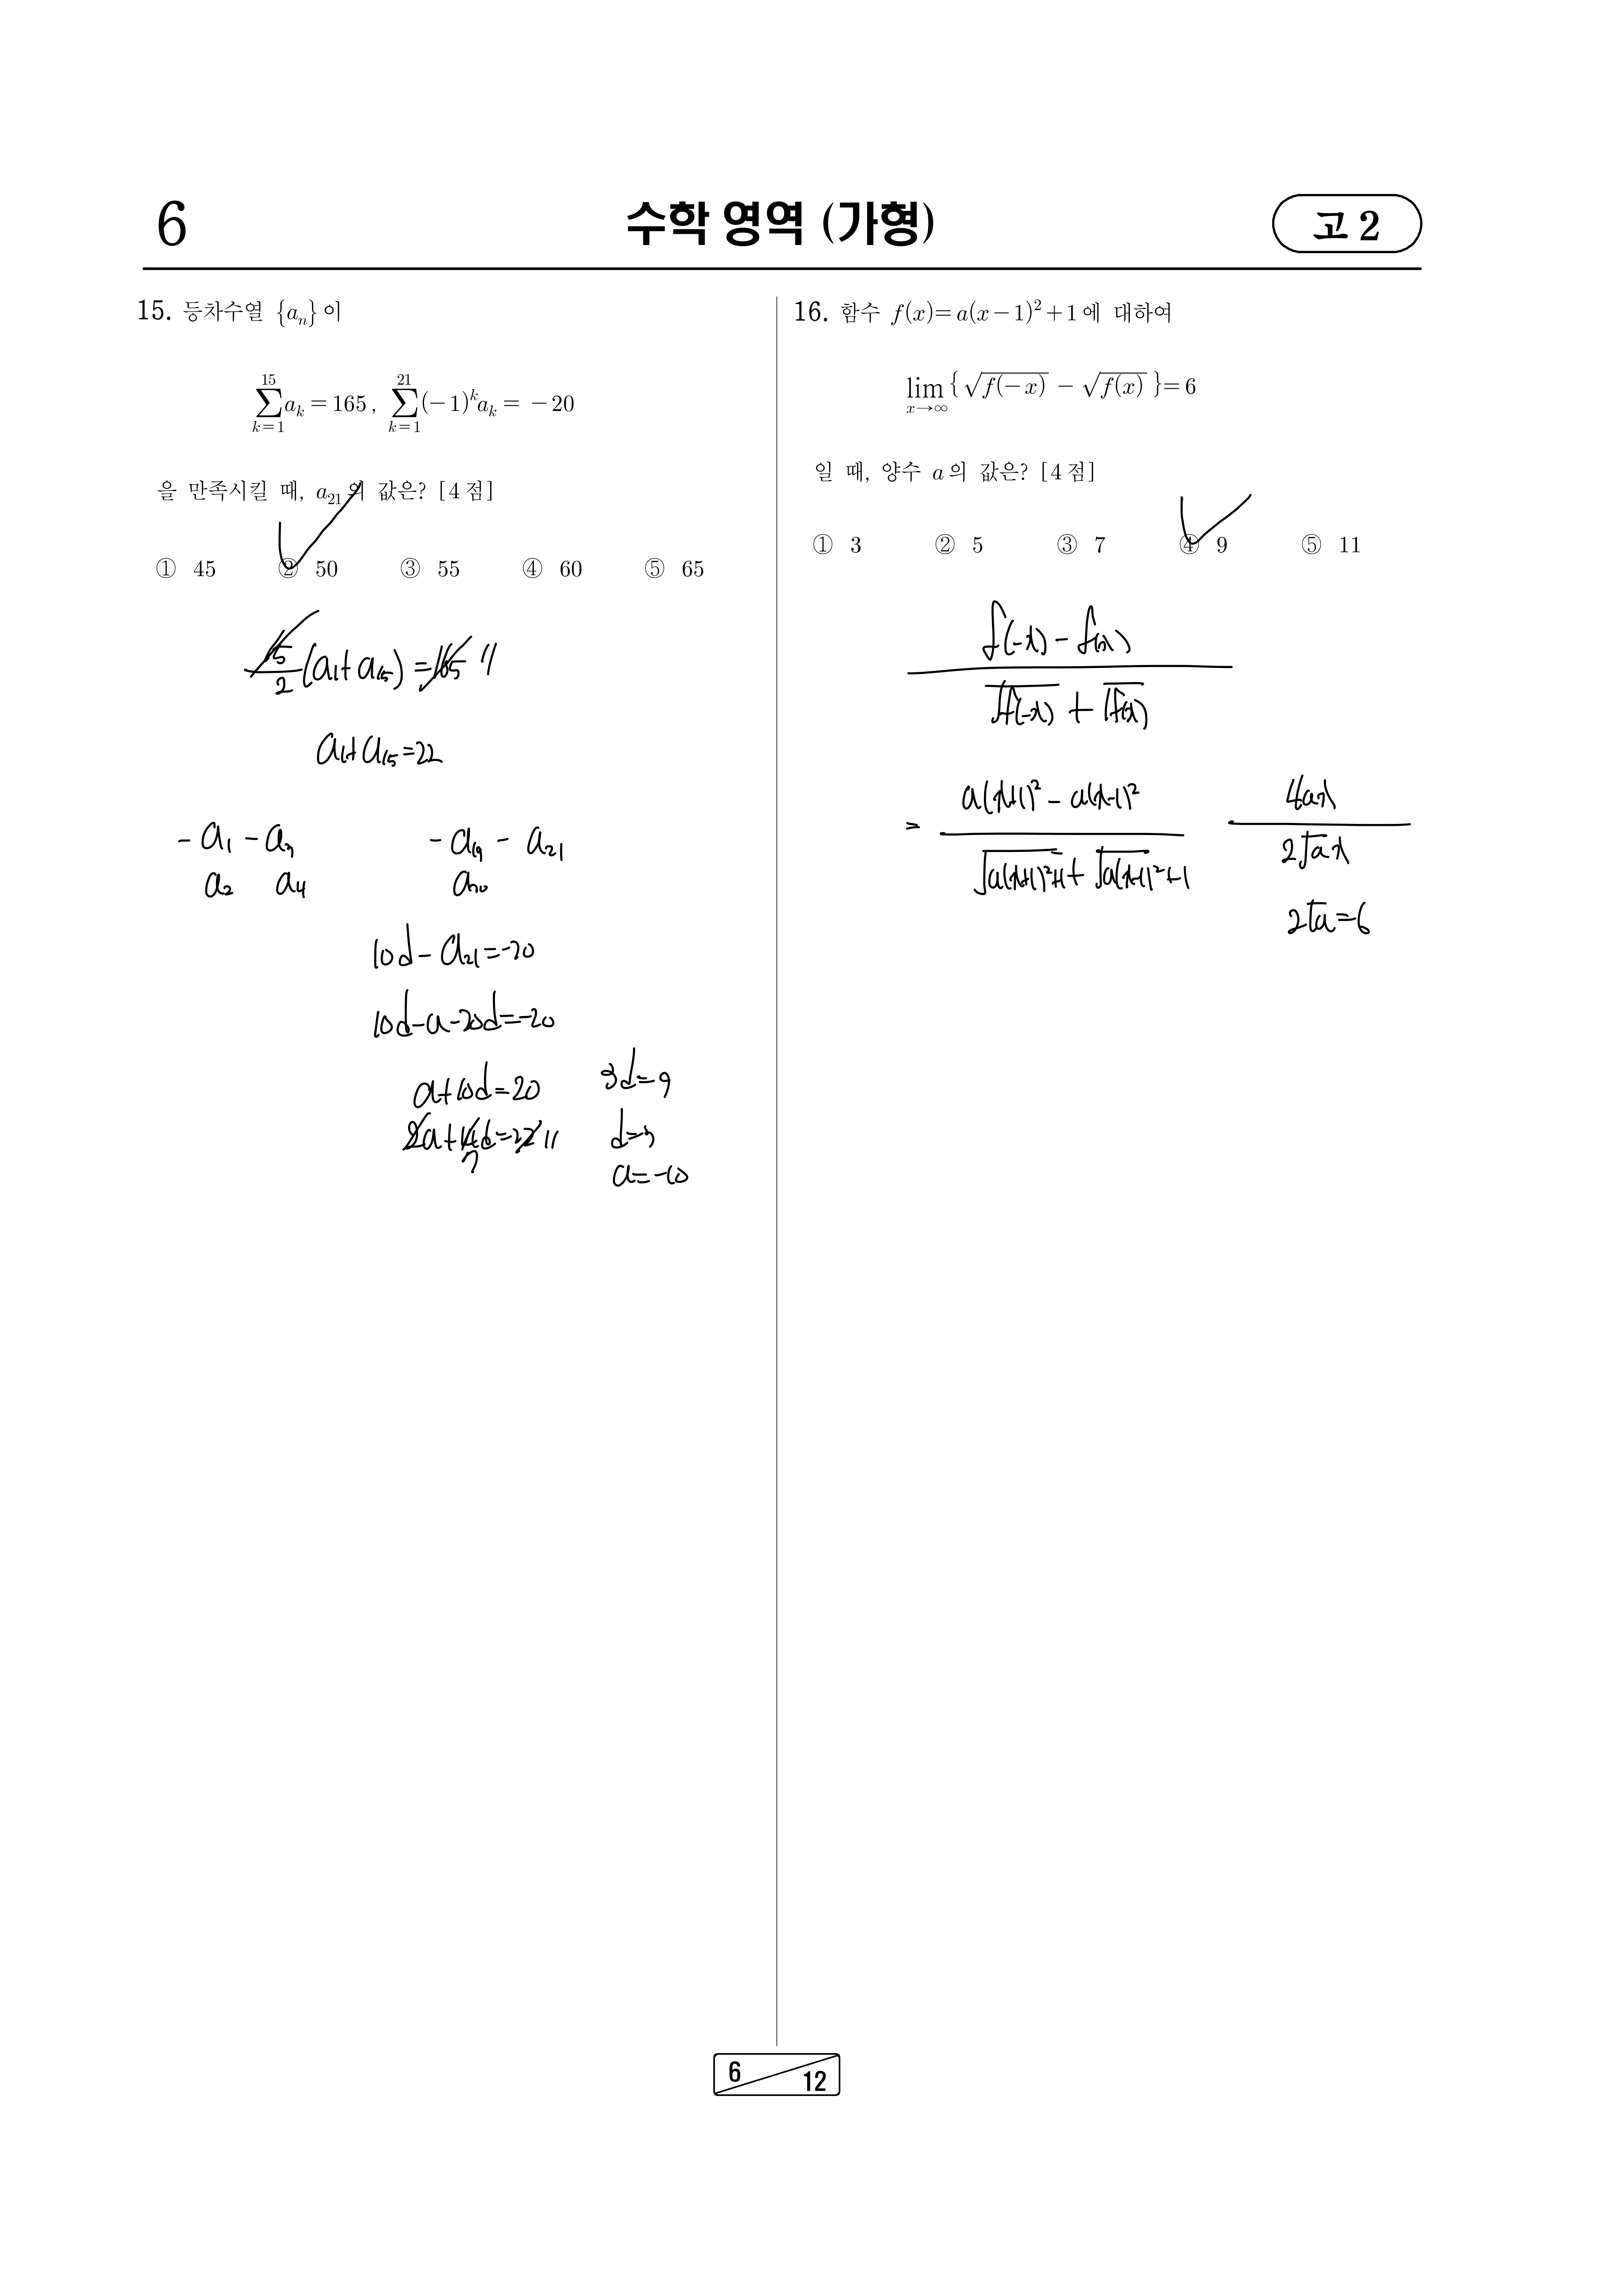 6
수학 영역 (가형)
고 2
15. 등차수열 {aₙ}이
∑_{k=1}^{15} a_k = 165, ∑_{k=1}^{21} (−1)^k a_k = −20
을 만족시킬 때, a₂₁의 값은? [4점]
① 45 ② 50 ③ 55 ④ 60 ⑤ 65
15/2 (a₁+a₁₅) = 165 11
a₁+a₁₅=22
-a₁ -a₃ -a₁₉ - a₂₁
a₂ a₄ a₂₀
10d - a₂₁=-20
10d-a-20d=-20
a+10d=20
2a+14d=22 11
7
3d=9
d=3
a=-10
16. 함수 f(x)=a(x−1)²+1에 대하여
lim_{x→∞} {√f(−x) − √f(x)}=6
일 때, 양수 a의 값은? [4점]
① 3 ② 5 ③ 7 ④ 9 ⑤ 11
f(-x) - f(x)
√f(-x) + √f(x)
= a(x+1)² - a(x-1)²
√a(x+1)²+1 + √a(x-1)²+1
4ax
2√a x
2√a=6
6
12